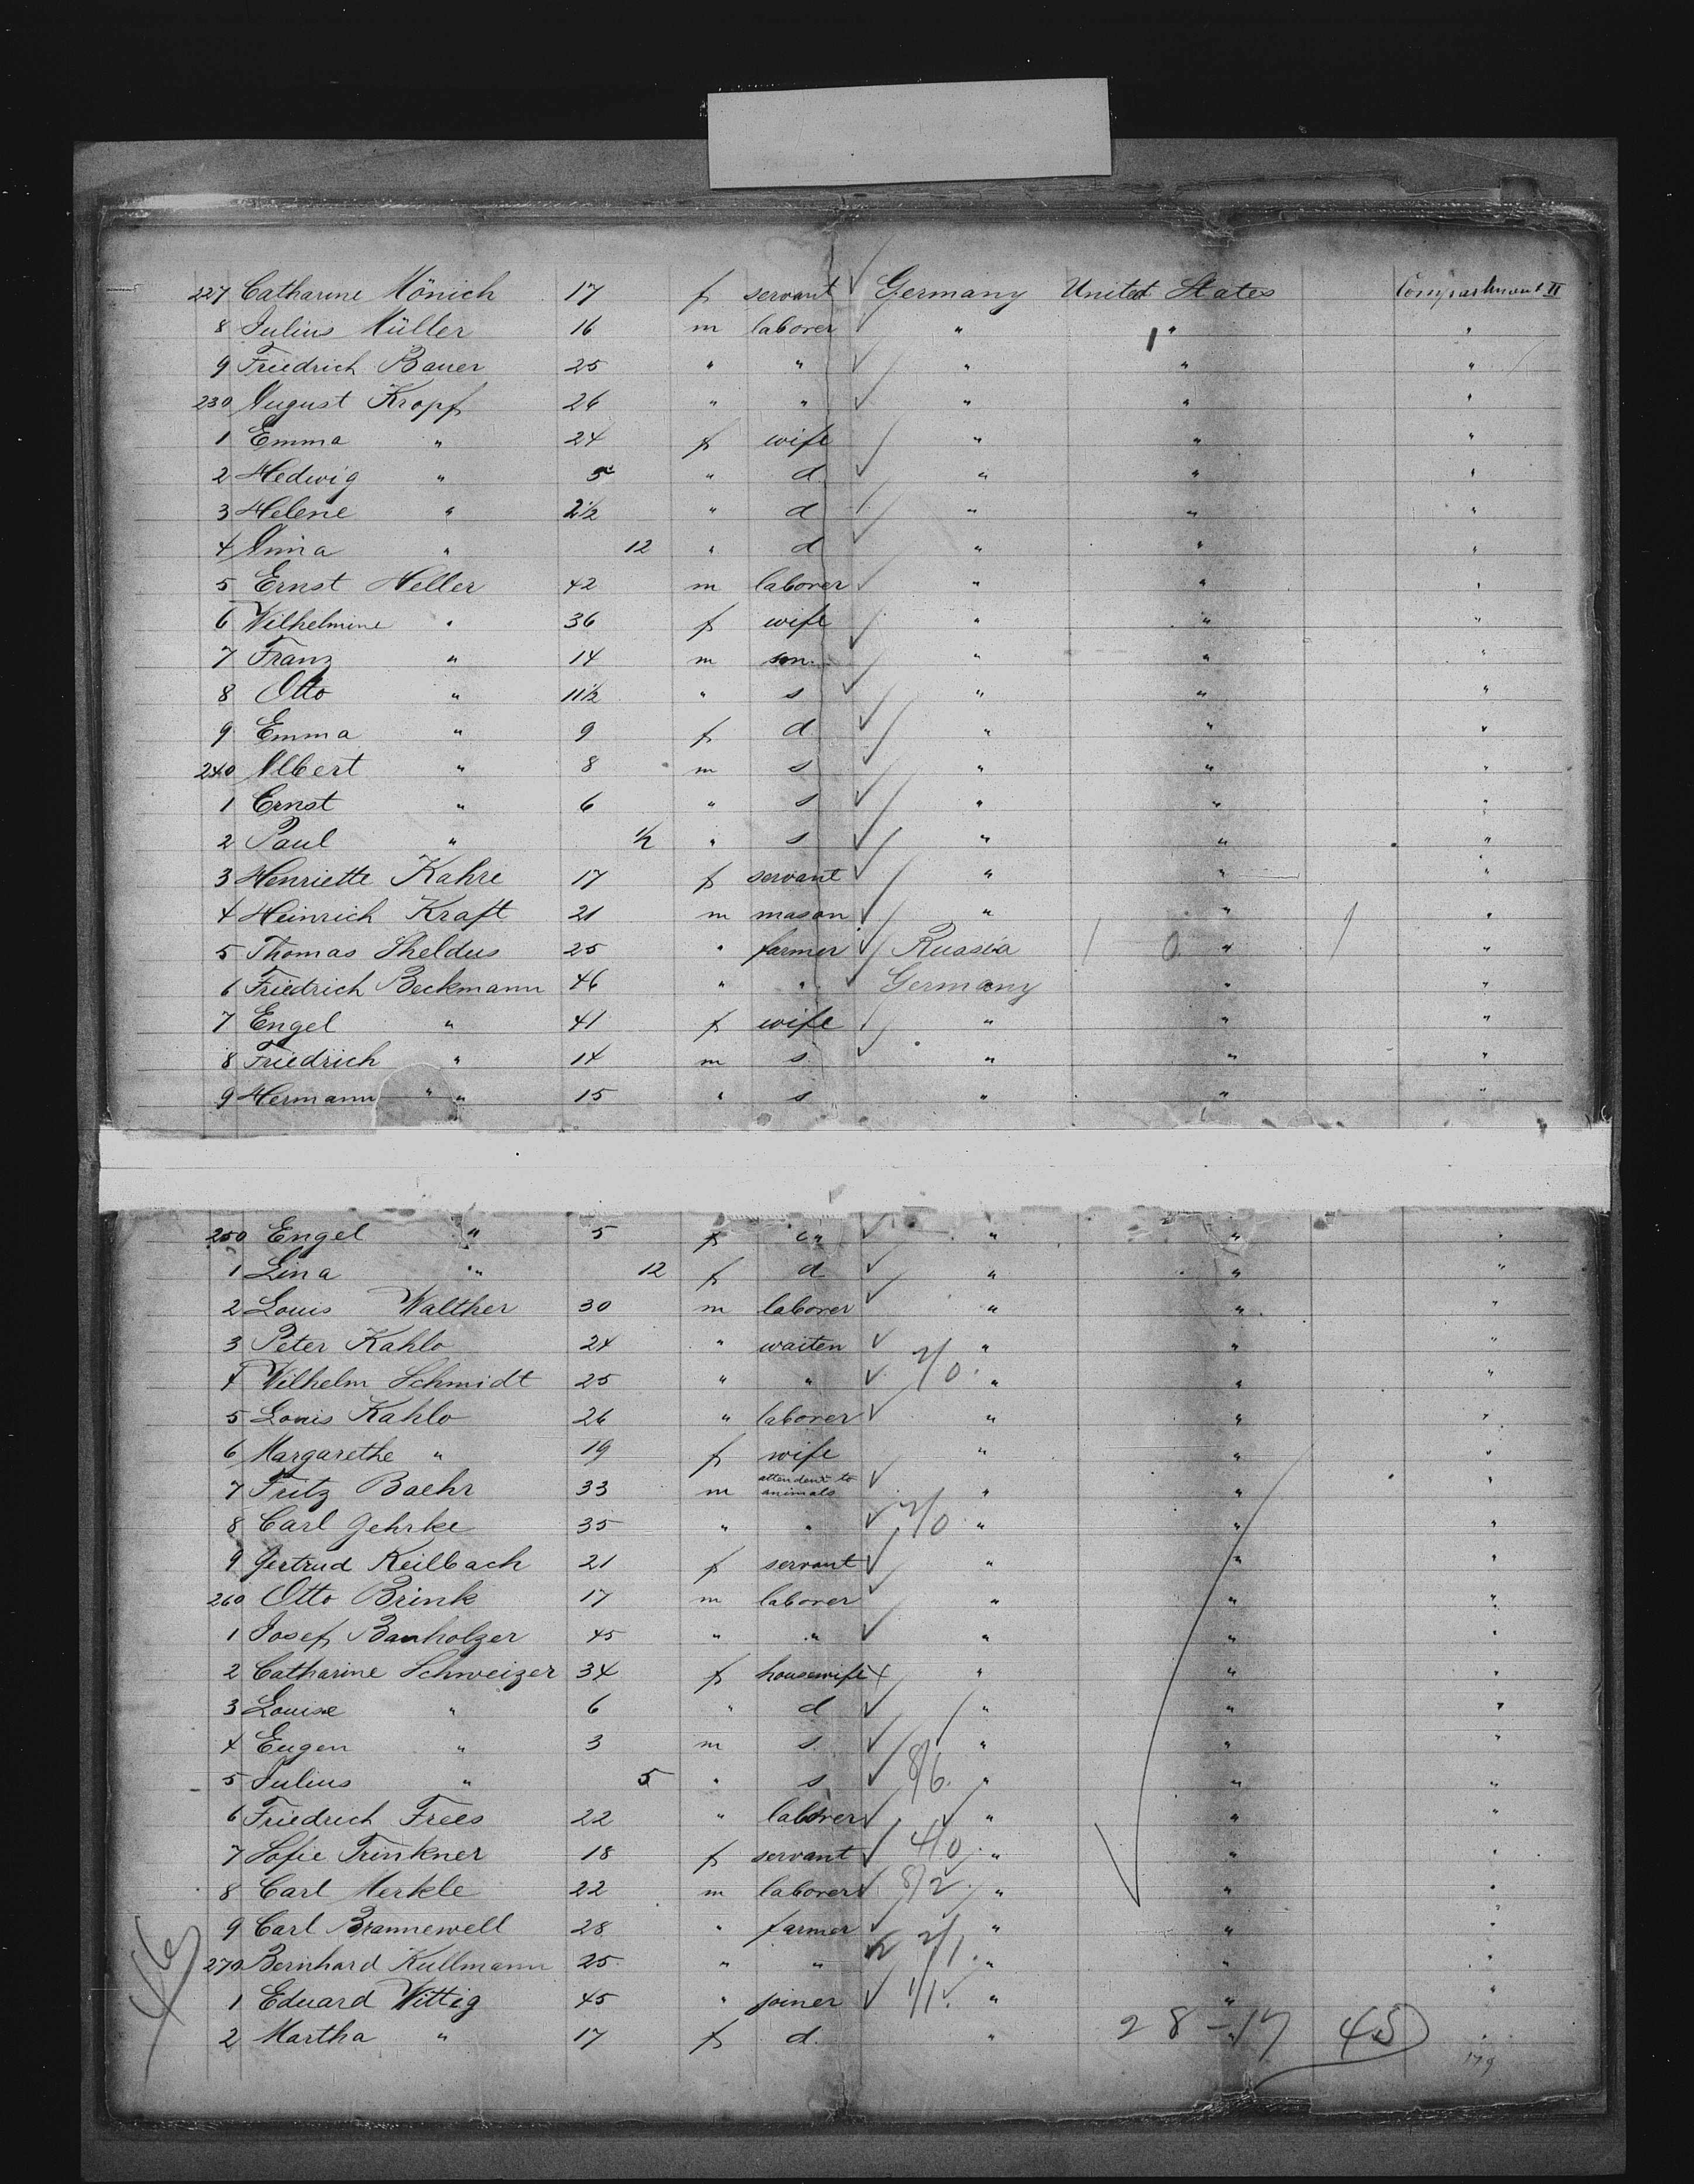 227 Catharine Mönich 17 f servant Germany United States Compartment II
8 Julius Müller 16 m laborer " " "
9 Friedrich Bauer 25 " " " " "
230 August Kropf 26 " " " " "
1 Emma " 24 f wife " " "
2 Hedwig " 5 " d " " "
3 Helene " 2 1/2 " d " " "
4 " 12 " d " " "
5 Ernst Heller 42 m laborer " " "
6 Wilhelmine " 36 f wife " " "
7 Franz " 14 m son " " "
8 Otto " 11 1/2 " s " " "
9 Emma " 9 f d " " "
240 Albert " 8 m s " " "
1 Ernst " 6 " s " " "
2 Paul " 1/2 " s " " "
3 Henriette Kahre 17 f servant " " "
4 Heinrich Kraft 21 m mason " " "
5 Thomas Sheldus 25 " farmer Russia 1 0 " 1 "
6 Friedrich Beckmann 46 " " Germany " "
7 Engel " 41 f wife " " "
8 Friedrich " 14 m s " " "
9 Hermann " " 15 " s " " "
250 Engel " 5 f " " " "
1 Lina " 12 f d " " "
2 Louis Walther 30 m laborer " " "
3 Peter Kahlo 24 " waiten " " "
4 Wilhelm Schmidt 25 " " 2/0 " " "
5 Louis Kahlo 26 " laborer " " "
6 Margarethe " 19 f wife " " "
7 Fritz Baehr 33 m attendent to animals " " "
8 Carl Gehrke 35 " " 2/0 " " "
9 Gertrud Keilbach 21 f servant " " "
260 Otto Brink 17 m laborer " " "
1 Josef Banholzer 45 " " " " "
2 Catharine Schweizer 34 f housewife " " "
3 Louise " 6 " d " " "
4 Eugen " 3 m s " " "
5 Julius " 5 " s 8/6 " " "
6 Friedrich Frees 22 " laborer " " "
7 Sofie Trinkner 18 f servant 4/0 " " "
8 Carl Merkle 22 m laborer 8/2 " " "
9 Carl Brannewell 28 " farmer " " "
270 Bernhard Kullmann 25 " " 2/1 " " "
1 Eduard Wittig 45 " joiner 1/1 " " "
2 Martha " 17 f d " 28-17 45 "
179
46